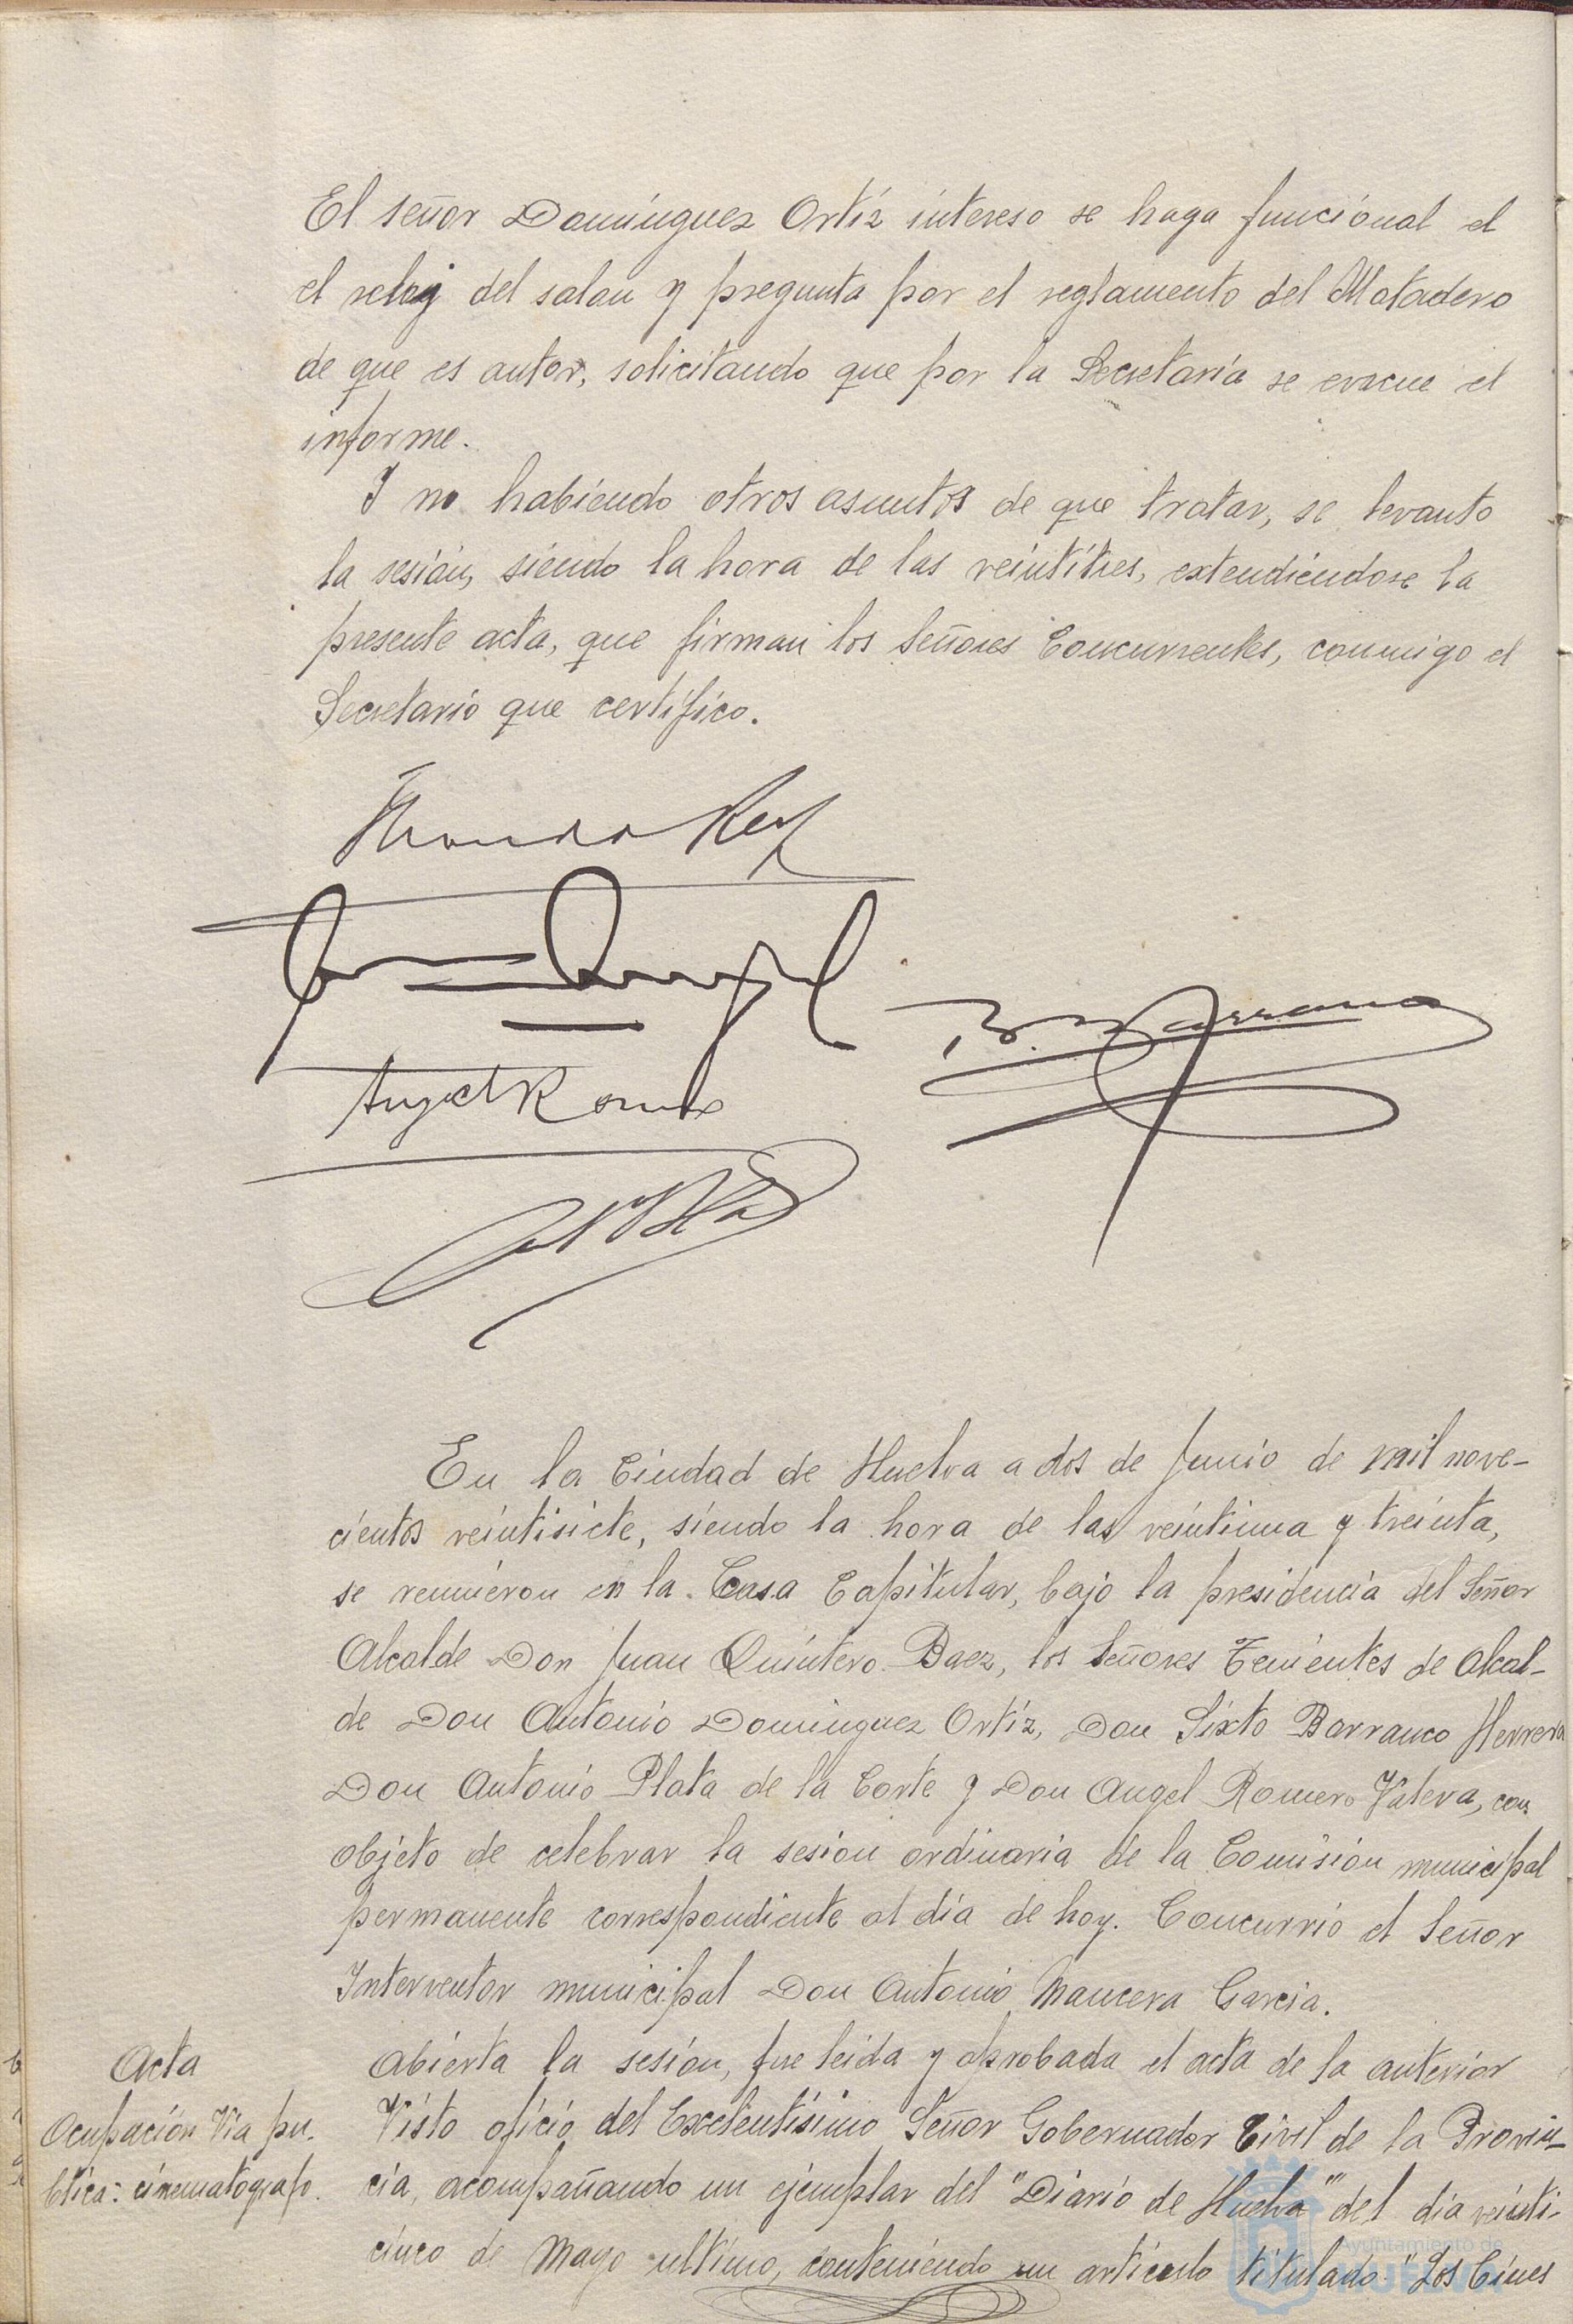 El señor Dominguez Ortiz intereso se haga funcional el
el reloj del salon y pregunta por el reglamento del Matadero
de que es autor, solicitando que por la Secretaría se evacue el
informe.
Y no habiendo otros asuntos de que tratar, se levanto
la sesión, siendo la hora de las veintitres, extendiendose la
presente acta, que firman los Señores Concurrentes, conmigo el
Secretario que certifico.
Angel Romero
En la Ciudad de Huelva a dos de Junio de mil nove-
cientos veintisiete, siendo la hora de las veintiuna y treinta,
se reunieron en la Casa Capitular, bajo la presidencia del Señor
Alcalde Don Juan Quintero Baez, los Señores Tenientes de Alcal-
de Don Antonio Dominguez Ortiz, Don Sixto Barranco Herrera
Don Antonio Plata de la Corte y Don Angel Romero Valera, con
objeto de celebrar la sesion ordinaria de la Comisión municipal
permanente correspondiente al día de hoy. Concurrió el Señor
Interventor municipal Don Antonio Mancera Garcia.
Acta
Abierta la sesión, fue leida y aprobada el acta de la anterior
Ocupación Via pu-
blica: cinematografo.
Visto oficio del Excelentísimo Señor Gobernador Civil de la Provin-
cia, acompañando un ejemplar del "Diario de Huelva" del día veinti-
cinco de Mayo ultimo, conteniendo un articulo titulado "Los Cines
Ayuntamiento de
HUELVA